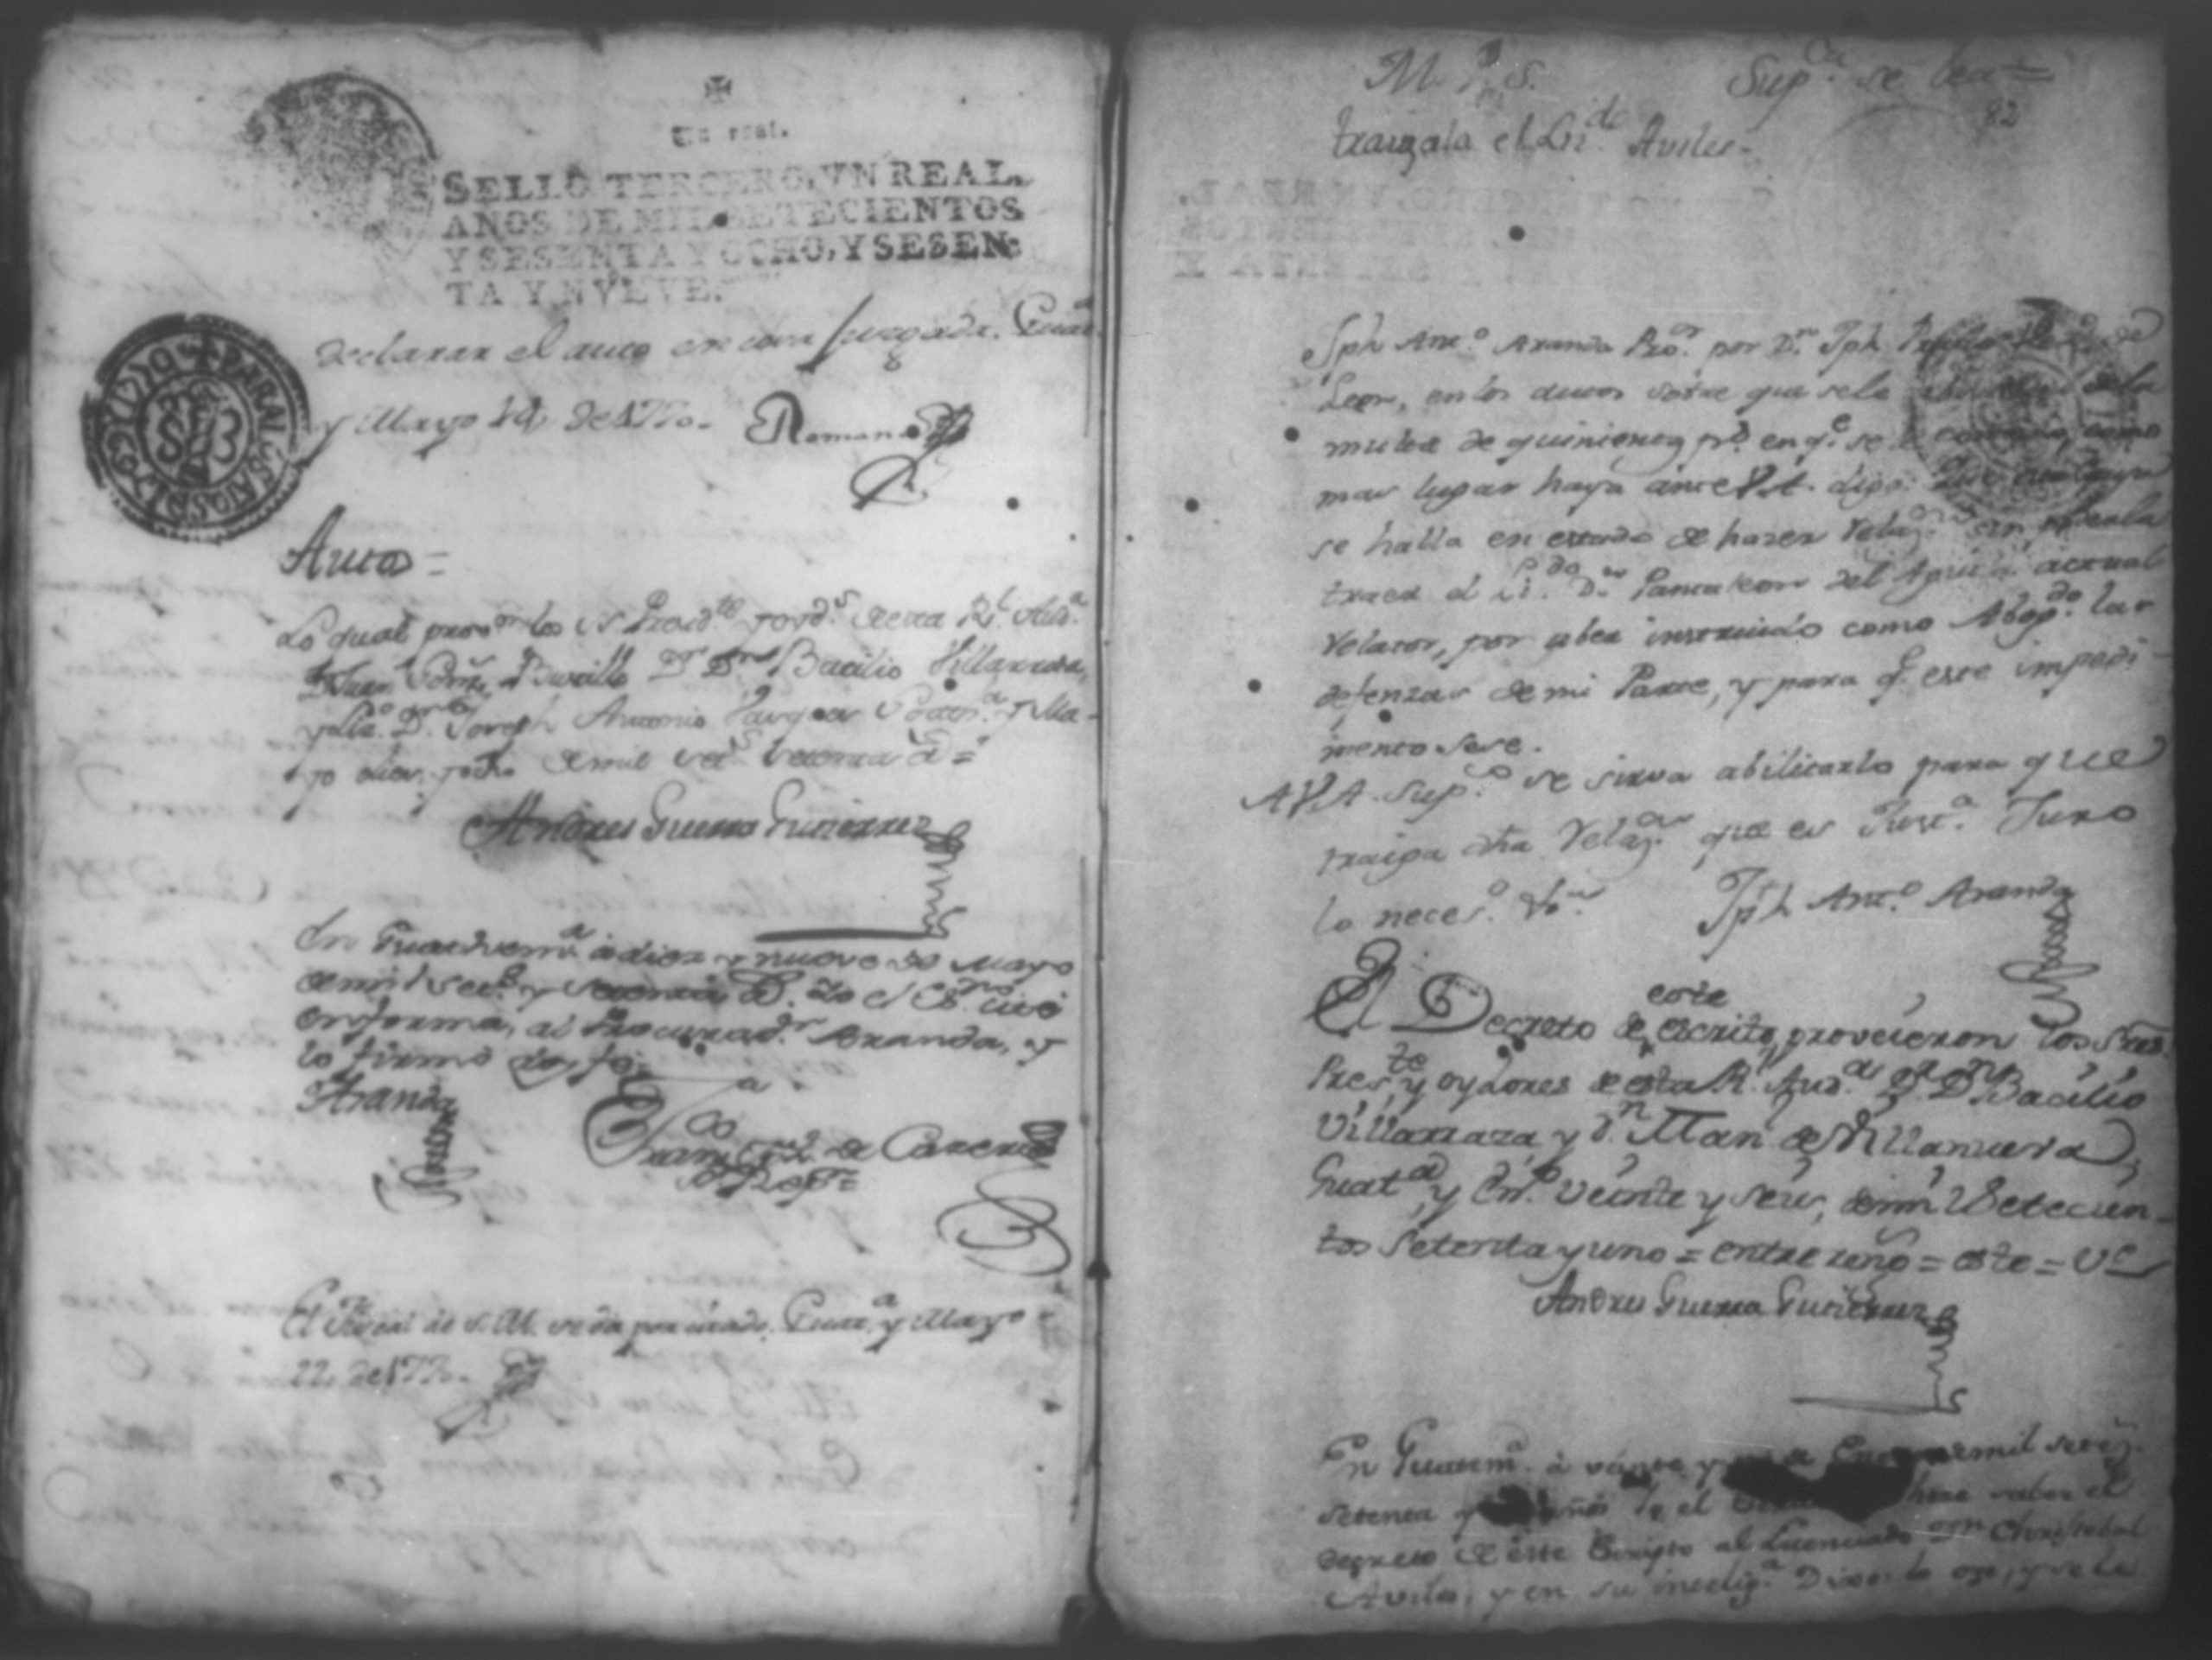 Un real.
SELLO TERCERO, VN REAL,
AÑOS DE MIL SETECIENTOS
Y SESENTA Y OCHO, Y SESEN-
TA Y NVEVE.
declarar el auto en cosa juzgada. Guat.a
y Mayo 19 de 1770.
Romana
PARA LOS AÑOS D 1770 Y 1771
Autos =
Lo qual prov.on los SS Presid.te y oyd.s de esta R.l Aud.a
D.n Juan Gonz. Bustillo D.r D.n Bacilio Villarrasa,
y Liz.do D.n Joseph Antonio Guat.a y Ma-
yo diez y ocho de mil set.s setenta a.s =
Andres Guerra Gutierrez
En Guathem.a a diez y nueve de Mayo
de mil set.s y setenta a.s Yo el Es.no cité
en forma, al Procurad.r Aranda, y
lo firmó doy fe.
Aranda
Fran.co de Carcenas
R.or
El Fiscal de S. M. se da por citado. Guat.a y Mayo
22 de 1770.
M. P. S. Sup.ca se lea =
82
traigala el Liz.do Aviles.
Jph Ant.o Aranda Pro.or por D.n Jph de
Leon, en los autos sobre que se le de la
multa de quinientos p.s en q.e se le condenó, como
mas lugar haya ante V.A. digo:
se halla en estado de hazer Relaz.on sin poderla
traer el Li.do D.n Pantaleon del Aguila actual
Relator, por aber instruido como Abog.do las
defenzas de mi Parte, y para q.e este impedi-
mento sese.
A V.A. sup.co se sirva abilitarlo para que
traiga dha Relaz.on que es Just.a Juro
lo neces.o &a.
Jph Ant.o Aranda
El Decreto de este escrito, proveieron los Sres.
Pres.te y oydores de esta R.l Aud.a D.r D.n Bacilio
Villarraza, y d.n Man.l de Villanueva,
Guat.a y En.o veinte y seis, de mil Setecien-
tos Setenta y uno = entre reng.s = este = V.e
Andres Guerra Gutierrez
En Guatem.a a veinte y de Enero de mil setez.s
setenta y años Yo el hize saber el
decreto de este Escripto al Licenciado D.n Christobal
Aviles, y en su intelig.a Dixo: lo oye, y se le